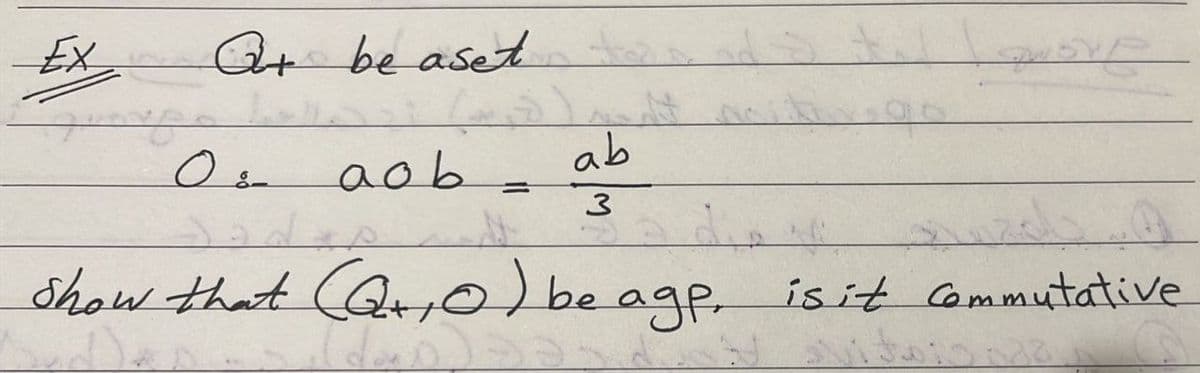 EX Q+ be a set
O :- aob = ab/3
show that (Q+,o) be a gp. is it Commutative